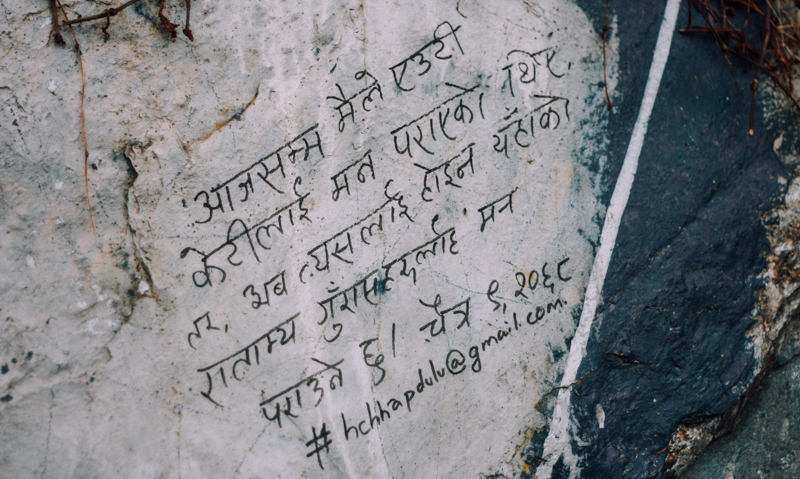 आजसम्म मैले एउटी
केटीलाई मन पराएको थिएँ.
तर, अब त्यसलाई होइन यहाँको
राताम्य गुँरासहरुलाई मन
पराउने छु। चैत्र ९, २०६८
# hchhapdulu@gmail.com.